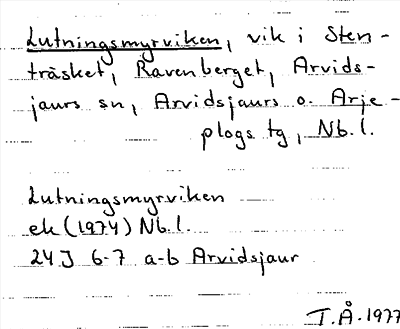 Lutningsmyrviken, vik i Sten-
träsket, Ravenberget, Arvids-
jaurs sn, Arvidsjaurs o. Arje-
plogs tg, Nb.l.
Lutningsmyrviken
ek (1974) Nb.l.
24J 6-7 a-b Arvidsjaur
T.Å. 1977